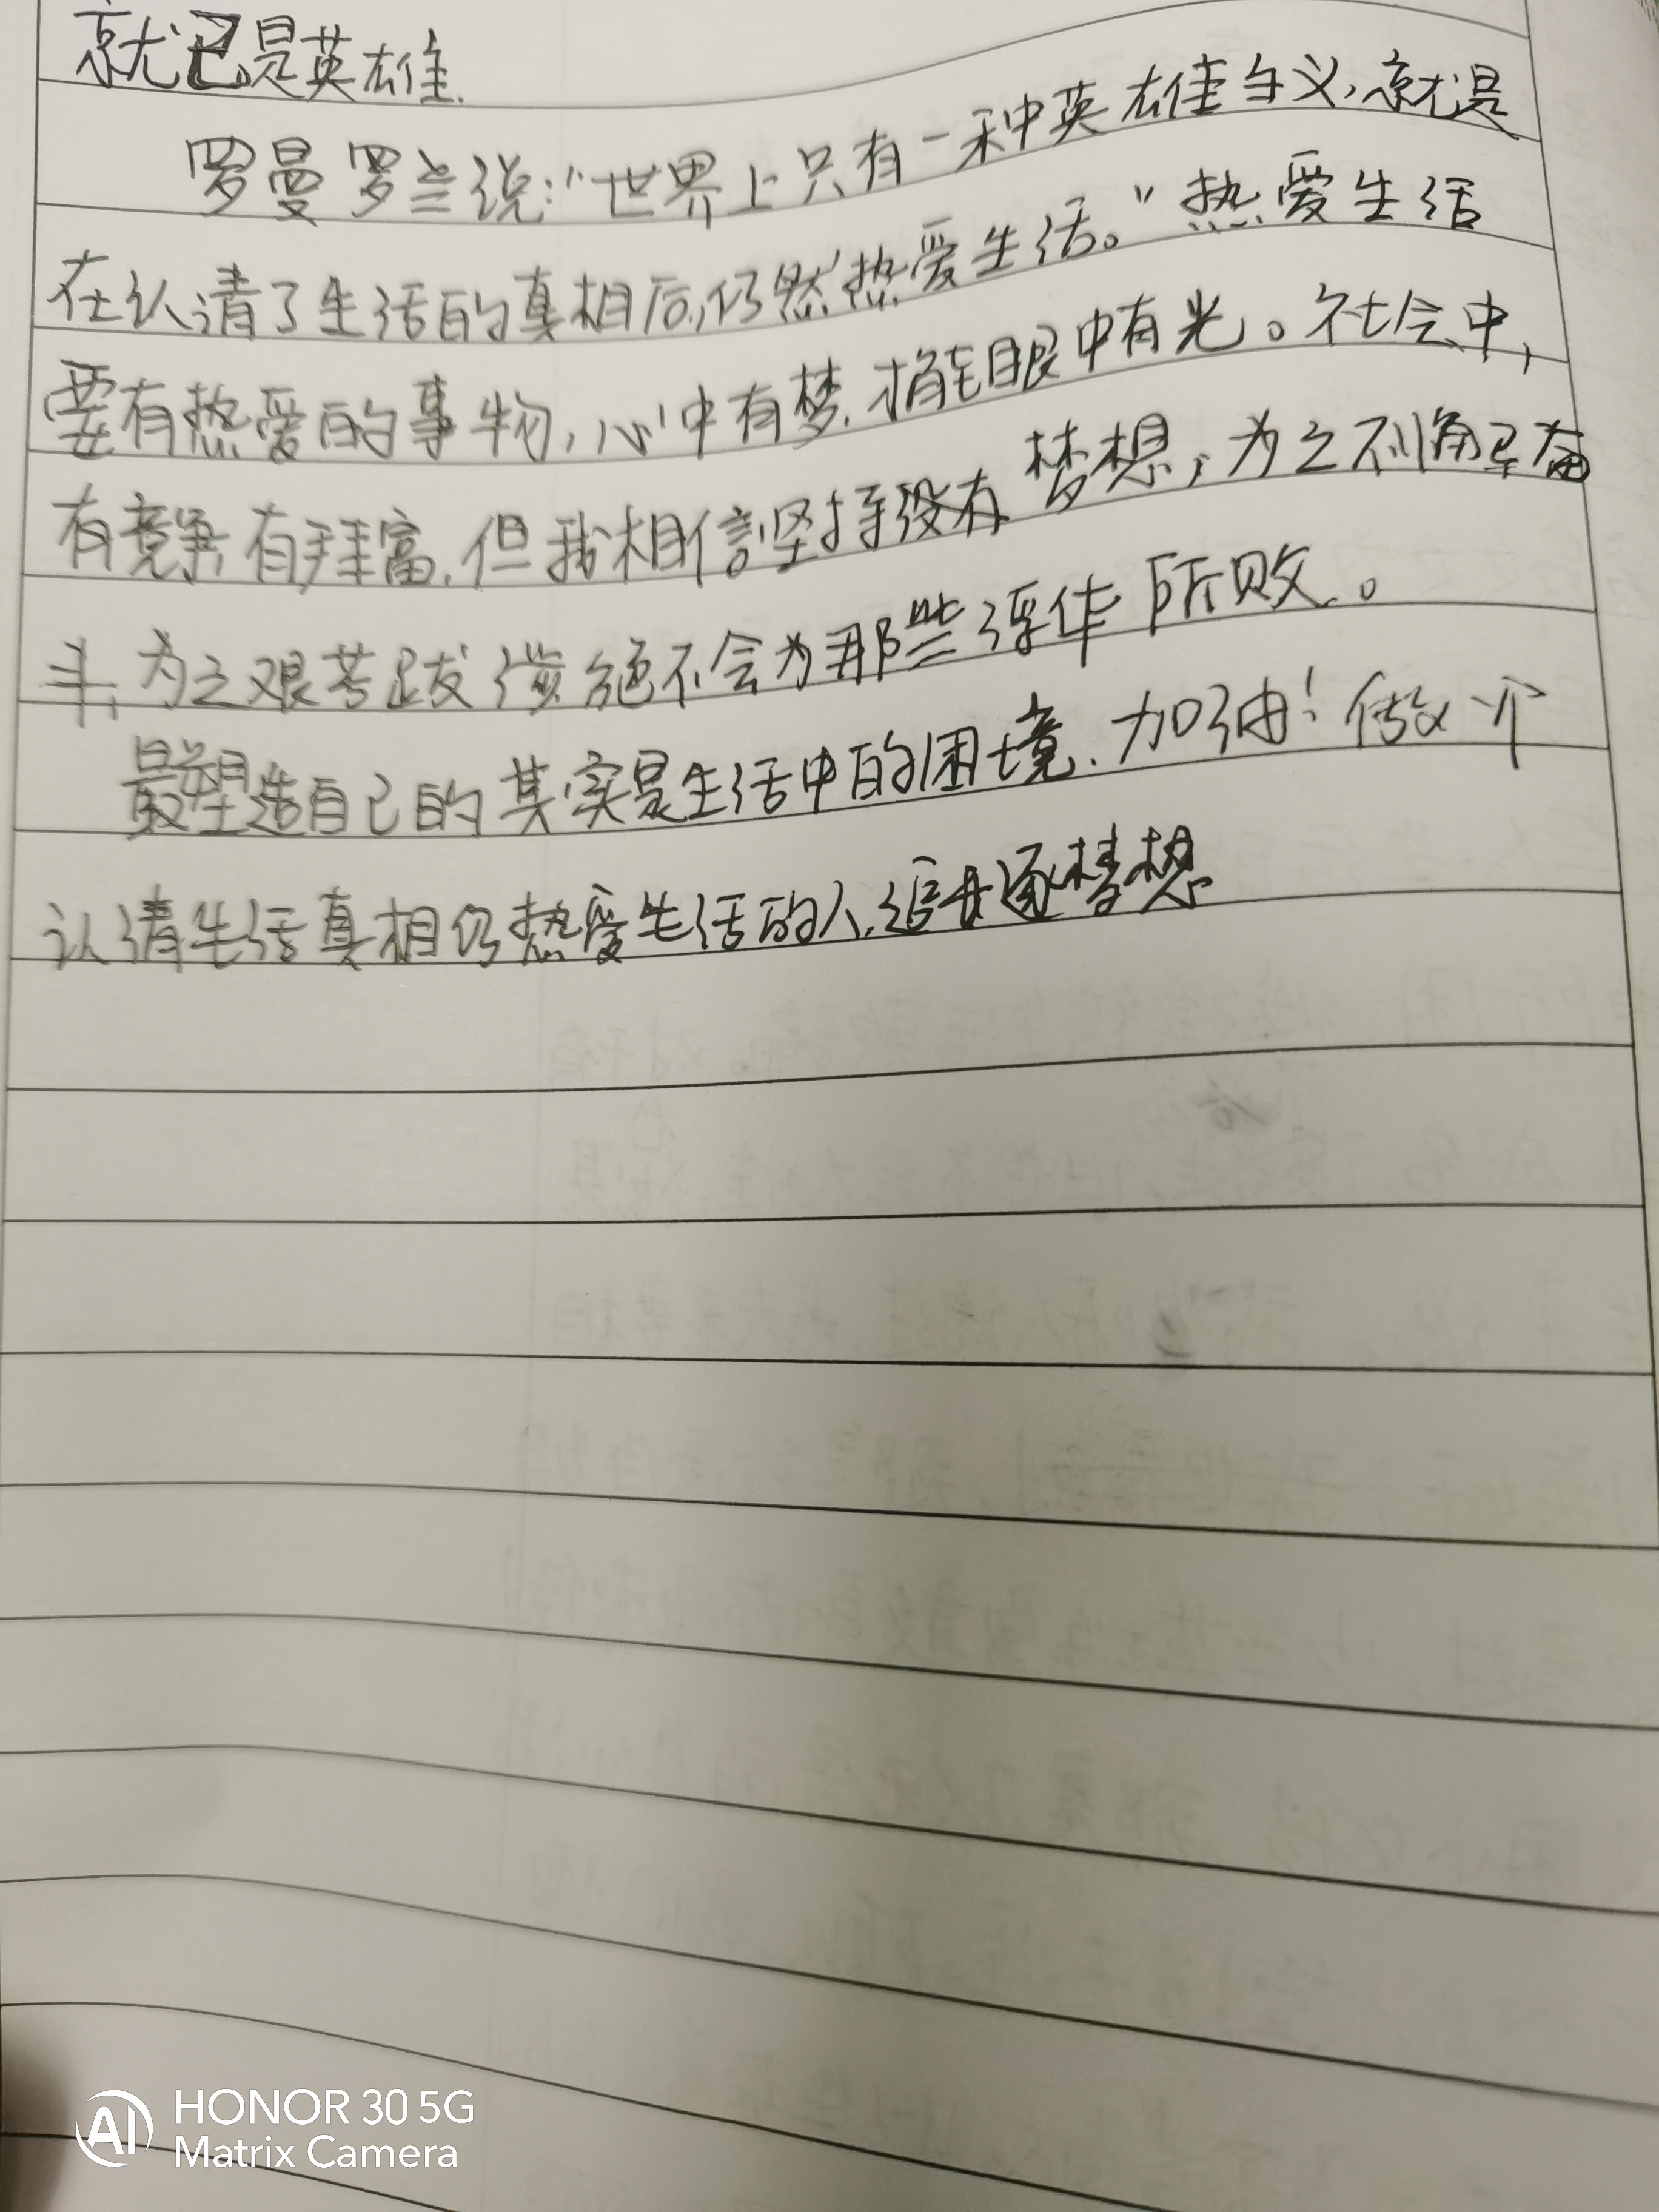 就已是英雄.
罗曼罗兰说:"世界上只有一种英雄主义,就是
在认请了生活的真相后,仍然热爱生活。"热爱生活
要有热爱的事物,心中有梦,眼中有光。社会中,
有竞争,有财富,但我相信坚持没有梦想,为之不懈奋
斗,为之艰苦跋涉,绝不会为那些浮华所败。
最塑造自己的其实是生活中的困境.加油!做一个
认请生活真相仍热爱生活的人,追逐梦想
HONOR 30 5G
Matrix Camera
AI